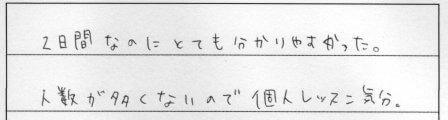 2日間なのにとても分かりやすかった。
人数が多くないので個人レッスン気分。